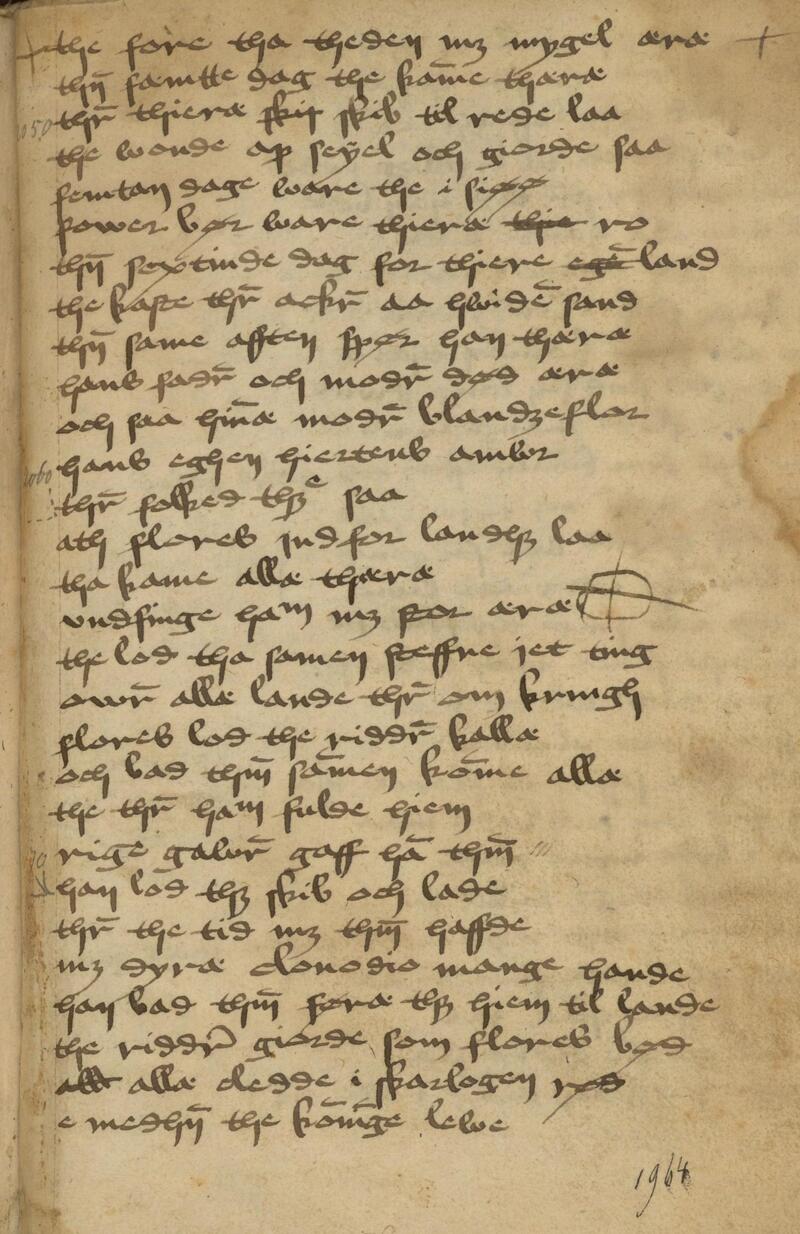 the fore tha theden mꝫ mygel æræ
thn̄ fæmtte dag the kām̄e thæræ
1050
thr̄ thieræ skip skib til rede laa
the wonde op seyel och giorde saa
femtan dage ware the i siøø
fower bør ware thieræ thie ro
thn̄ sextinde dag for thiere egē land
the kaste thr̄ ackr̄ aa hwidē sand
thn̄ same afften spør han thæræ
hans fadr̄ och modr̄ død æræ
och saa hin̄æ modr̄ blandzeflor
1060
hans eghen hiertens amwr
thr̄ folked thꝫe saa
ath flores ind for landhꝫ laa
tha kame allæ thæræ
vndfinge ham mꝫ stor æræ
the lod tha samen steffne iet ting
owr̄ allæ lande thr̄ om kringh
flores lod the riddr̄ kallæ
och bad thm̄ sām̄en kōm̄e allæ
the thr̄ ham fulde hiem
70
rige gawr̄ gaff hā thm̄
han lod thꝫ skib och lade
thr̄ the tid mꝫ thm̄ haffde
mꝫ dyræ clonodio mange hande
han bad thm̄ føræ thꝫ hiem til lande
the riddr̄ giorde som flores bød
allæ cledde i skarlogen rød
e medhn̄ the kōnīge lewe
1964